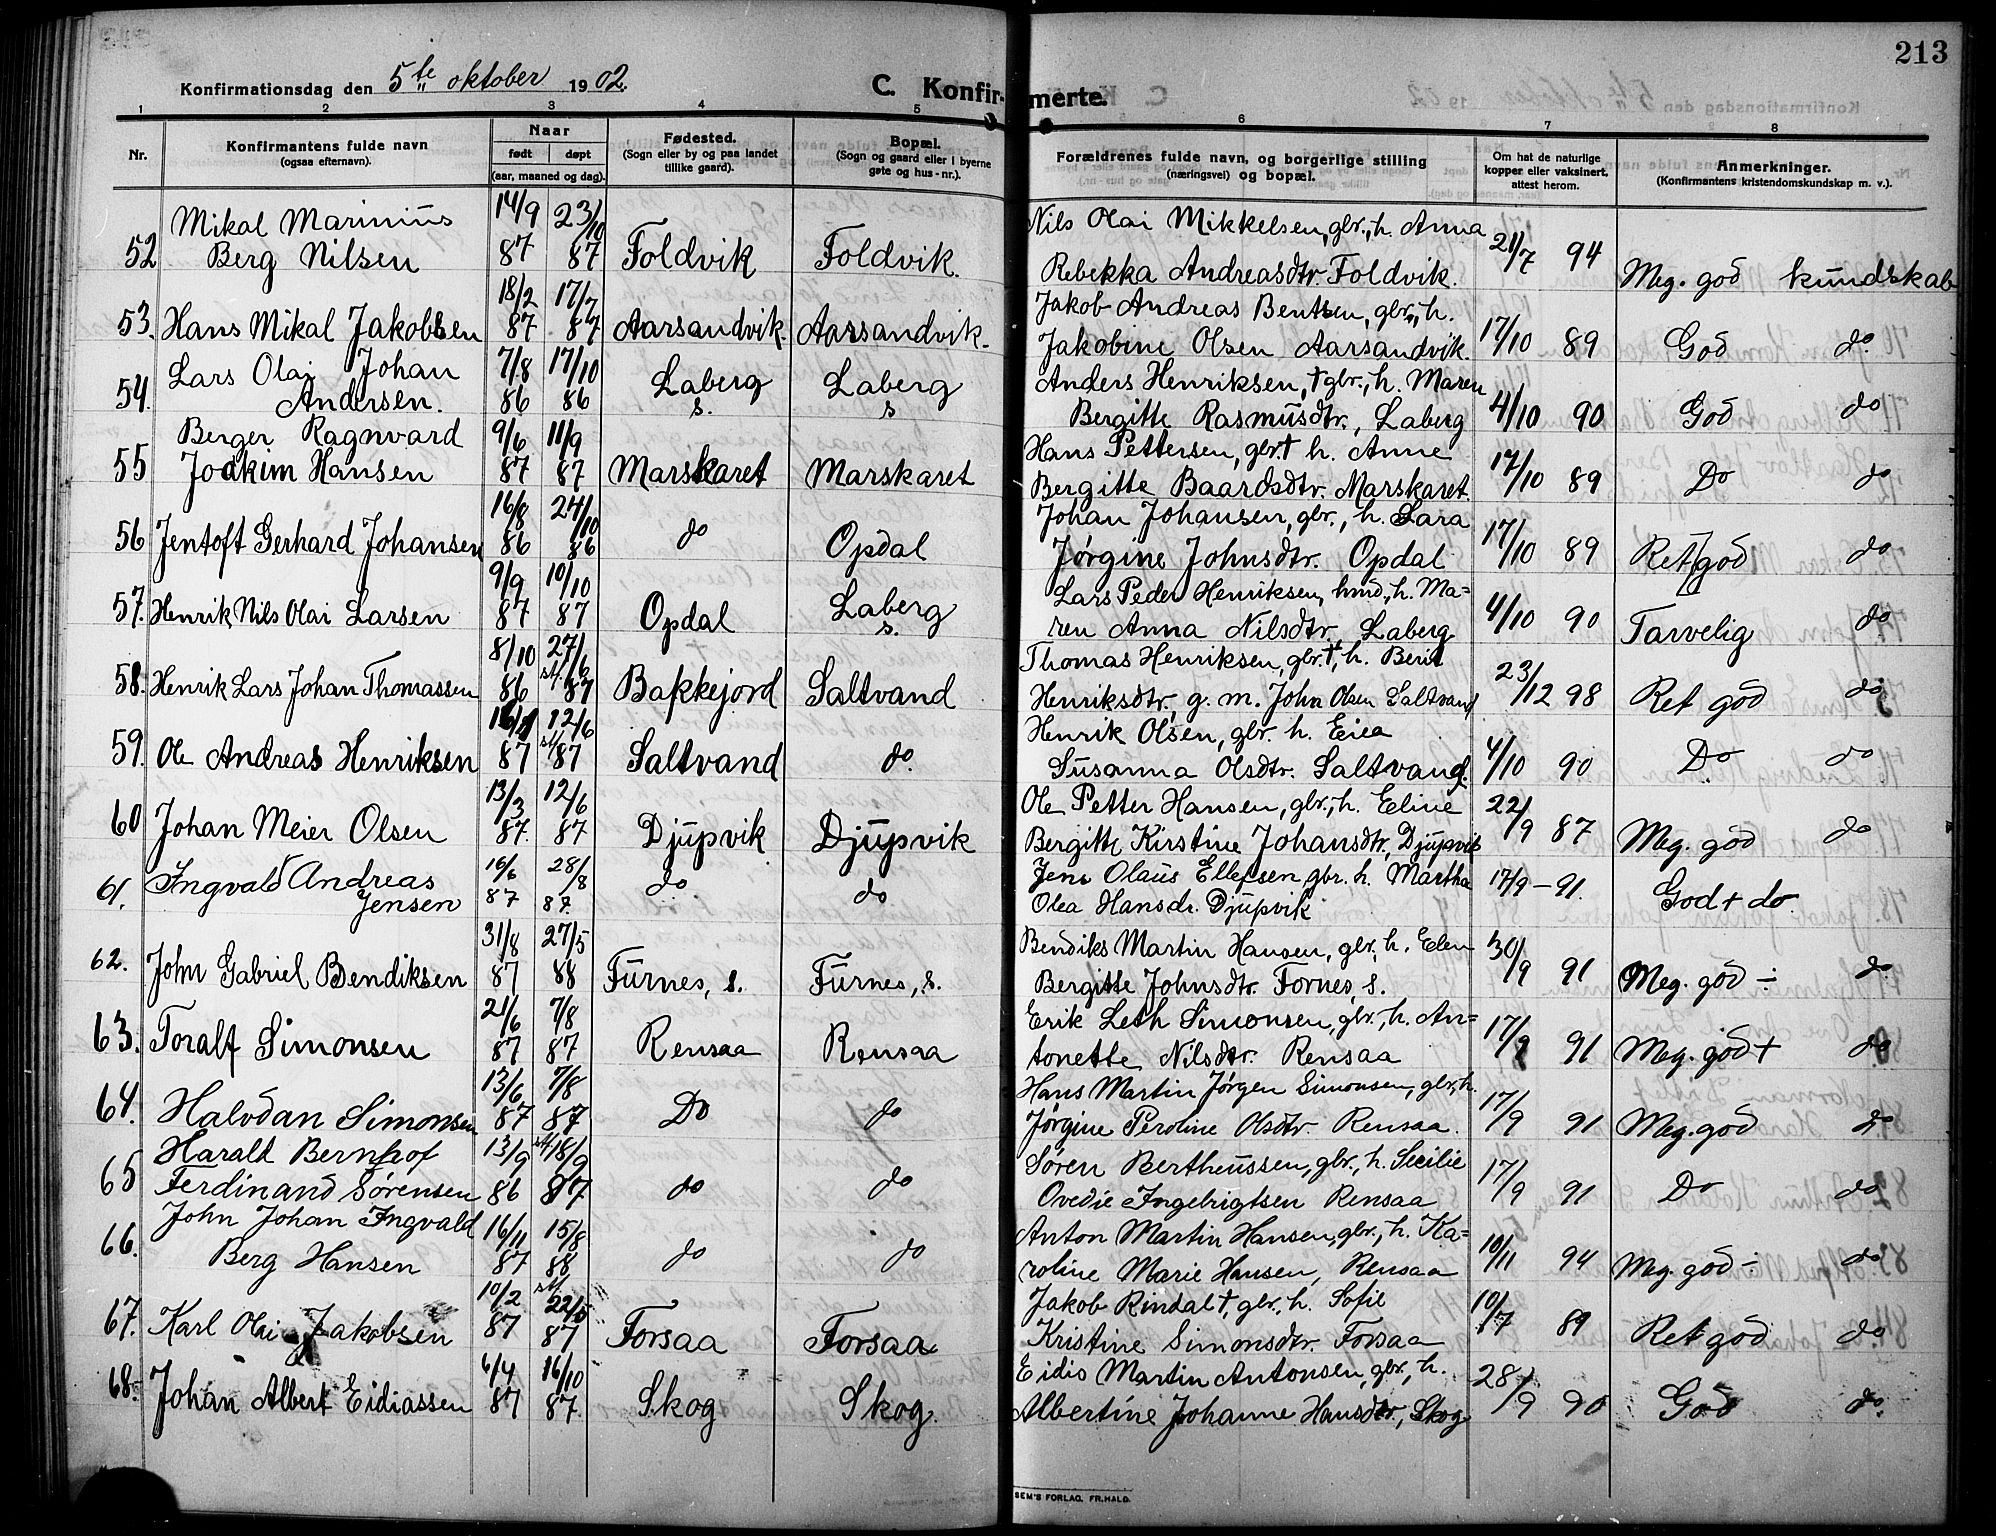 213
Konfirmationsdag den 5te oktober 1902.
C. Konfirmerte.
1 2 3 4 5 6 7 8
Nr.
Konfirmantens fulde navn
(ogsaa efternavn).
Naar
født døpt
(aar, maaned og dag).
Fødested.
(Sogn eller by og paa landet
tillike gaard).
Bopæl.
(Sogn og gaard eller i byerne
gate og hus-nr.).
Forældrenes fulde navn, og borgerlige stilling
(næringsvei) og bopæl.
Om hat de naturlige
kopper eller vaksinert,
attest herom.
Anmerkninger.
(Konfirmantens kristendomskundskap m. v.).
Mikal Marinius 14/9 23/10 Nils Olai Mikkelsen, gbr., h. Anna
52 Berg Nilsen 87 87 Foldvik Foldvik. Rebekka Andreasdtr. Foldvik. 21/7 94 Meg. god kundskab
18/2 17/7 Jakob Andreas Bentsen, gbr., h.
53. Hans Mikal Jakobsen 87 87 Aarsandvik. Aarsandvik. Jakobine Olsen Aarsandvik. 17/10 89 God do
Lars Olai Johan 7/8 17/10 Anders Henriksen, † gbr., h. Maren
54. Andersen. 86 86 Laberg s. Laberg s Bergitte Rasmusdtr., Laberg 4/10 90 God do
Berger Ragnvard 9/6 11/9 Hans Pettersen, gbr.† h. Anne
55 Joakim Hansen 87 87 Marskaret Marskaret Bergitte Baardsdtr. Marskaret. 17/10 89 Do do
16/8 24/10 Johan Johansen, gbr., h. Lara
56 Jentoft Gerhard Johansen 86 86 do Opdal Jørgine Johnsdtr. Opdal 17/10 89 Ret god do
9/9 10/10 Lars Peder Henriksen, hmd., h. Ma=
57. Henrik Nils Olai Larsen 87 87 Opdal Laberg s. ren Anna Nilsdtr. Laberg 4/10 90 Tarvelig do
8/10 27/6 Thomas Henriksen, gbr.†, h. Berit
58. Henrik Lars Johan Thomassen 86 st/. 87 Bakkejord Saltvand Henriksdtr., g. m. John Olsen Saltvand 23/12 98 Ret god do
12/6 Henrik Olsen, gbr. h.
59. Ole Andreas Henriksen 87 st/. 87 Saltvand do. Susanna Olsdtr. Saltvand. 4/10 90 Do do
13/3 12/6 Ole Petter Hansen, gbr., h. Eline
60 Johan Meier Olsen 87. 87 Djupvik Djupvik Bergitte Kirstine Johansdtr., Djupvik 22/9 87 Meg. god do
Ingvald Andreas 16/6 28/8 do do Jens Olaus Ellefsen gbr. h. Martha
61. Jensen 87 87. Olea Hansdr. Djupvik 17/9 – 91. God + do.
31/8 27/5 Bendiks Martin Hansen, gbr., h. Elen
62. John Gabriel Bendiksen 87 88 Furnes, s. Furnes, s. Bergitte Johnsdtr. Fornes, s. 30/9 91 Meg. god ÷ do
21/6 7/8 Erik Leth Simonsen, gbr., h. An=
63. Toralf Simonsen 87 87 Rensaa Rensaa tonette Nilsdtr. Rensaa 17/9 91 Meg. god + do
13/6 7/8 Hans Martin Jørgen Simonsen, gbr., h.
64. Halvdan Simonsen 87 87 Do do Jørgine Peroline Olsdtr. Rensaa. 17/9 91 Meg. god do
Harald Bernhof 13/9 st/. 18/9 Søren Bertheussen, gbr., h. Secilie
65 Ferdinand Sørensen 86 87 do do Ovedie Ingebrigtsen Rensaa 17/9 91 Do do
John Johan Ingvald 16/11 15/8 Anton Martin Hansen, gbr., h. Ka=
66. Berg Hansen 87 88 do do roline Marie Hansen, Rensaa 10/11 94 Meg. god ÷ do
10/2 st/. 22/5 Jakob Rindal †, gbr., h. Sofie
67. Karl Olai Jakobsen 87 87 Forsaa Forsaa Kristine Simonsdtr. Forsaa 10/7 89 Ret god do
6/4 16/10 Eidis Martin Antonsen, gbr., h.
68. Johan Albert Eidiassen 87 87. Skog Skog Albertine Johanne Hansdtr., Skog 28/9 90 God do.
SEM'S FORLAG, FR.HALD.